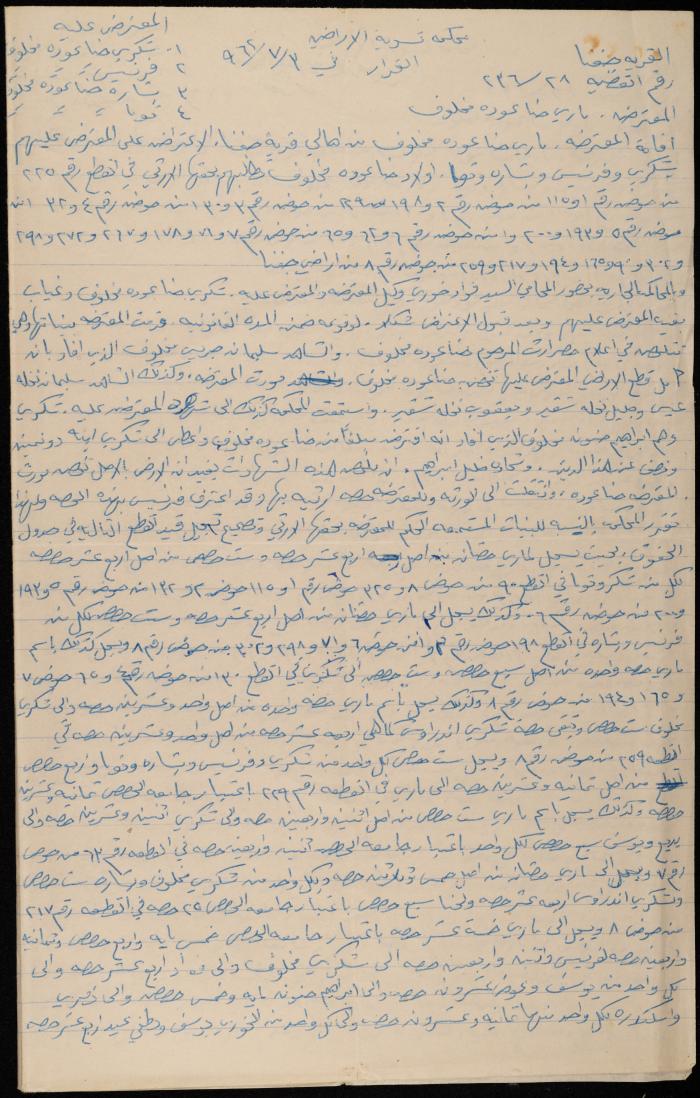 محكمة تسوية الاراضي
القرار في ٩٦٢/٧/٣
المعترض عليه
١. شكري حنا عوده مخلوف
٢ فرنسيس
٣ بشاره حنا عوده مخلوف
٤ تقولا
القرية جفنا
رقم القضية ٢٨/٢٣٦
المعترضة. ماري حنا عوده مخلوف
اقامة المعترضة. ماري حنا عوده مخلوف من اهالي قرية جفنا. الاعتراض على المعترض عليهم
شكري وفرنسيس وبشاره اولاد حنا عوده مخلوف تطالبهم بحقها الارثي في القطع رقم ٢٢٥
من حوض رقم ١ و ١١٥ من حوض رقم ٢ و ١٩٨ من حوض رقم ٣ و ١٣٠ من حوض رقم ٤ و ٣٢
حوض رقم ٥ و ١٩٣ و ٢٠٠ من حوض رقم ٦ و ٦٢ و ٦٥ من حوض رقم ٧ و ٧١ و ١٧٨ و ٢٦٧ و ٢٧٢ و ٢٩٨
و ٣٠٢ و ٩٠ و ١٦٥ و ١٩٤ و ٢١٧ و ٢٥٩ من حوض رقم ٨ من اراضي جفنا
وبالمحاكمة الجارية بحضور المحامي السيد فؤاد خوري وكيل المعترضة والمعترض عليه. شكري حنا عوده مخلوف وغياب
بقية المعترض عليهم وبعد قبول الاعتراض شكلا. لوقوعه ضمن المدة القانونية. قدمت المعترضة بيناتها وهي
تتلخص في اعلام حصر ارث المرحوم حنا عوده مخلوف. والشاهد سليمان جريس مخلوف الذي افاد بان
كل قطع الاراضي المعترض عليها تخص حنا عوده مخلوف. مورث المعترضة. وكذلك الشاهد سليمان نخله
عيسى وخليل نخله شقير ويعقوب نخله شقير. واستمعت المحكمة كذلك الى شهود المعترض عليه. شكري
وهم ابراهيم حنونه مخلوف الذي افاد انه اقترض مبلغا من حنا عوده مخلوف واعطى الى شكري ابنه دونمين
وان ملخص هذه الشهادات يفيد ان الارض بالاصل تخص مورث
المعترضة حنا عوده. وانتقلت الى الورثة وللمعترضة حصة ارثية بها وقد اعترف فرنسيس بهذه الحصة ولهذا
تقرر المحكمة بالنسبة للبينات المستمعة الحكم للمعترضة بحقها الارثي وتصحيح تسجيل قيد القطع التالية في جدول
الحقوق. بحيث يسجل لماري حصتان من اصل اربع عشر حصة وست حصص من اصل اربع عشر حصة
لكل من شكري في القطع ٩٠ من حوض ٨ و ٢٢٥ حوض رقم ١ و ١١٥ حوض ٢ و ١٣٢ من حوض رقم ٥ و ١٩٣
و ٢٠٠ من حوض رقم ٦. وكذلك يسجل الى ماري حصتان من اصل اربع عشر حصة وست حصص لكل من
فرنسيس وبشاره في القطع ١٩٨ حوض رقم ٣ و ٧١ و ٢٩٨ و ٣٠٢ من حوض رقم ٨ ويسجل كذلك باسم
ماري حصة واحده من اصل سبع حصص وست حصص الى شكري في القطع ١٣٠ من حوض رقم ٤ و ٦٥ حوض ٧
و ١٦٥ و ١٩٤ من حوض رقم ٨ وكذلك يسجل باسم ماري حصة واحده من اصل واحد وعشرين حصة والى شكري
مخلوف ست حصص وتبقى حصة شكري اندراوس كما هي اربعة عشر حصة من اصل واحد وعشرين حصة في
القطعة ٢٥٩ من حوض رقم ٨ ويسجل ست حصص لكل واحد من شكري وفرنسيس وبشاره واربع حصص
من اصل ثمانية وعشرين حصة الى ماري في القطعة رقم ٢٢٩ باعتبار جامعة الحصص ثمانية وعشرين
حصة وكذلك يسجل باسم ماري ست حصص من اصل اثنين واربعين حصة والى شكري اثنين وعشرين حصة والى
بديع ويوسف سبع حصص لكل واحد باعتبار جامعة الحصص اثنين واربعين حصة في القطعة رقم ٦٣ من حوض
رقم ٧ ويسجل الى ماري حصتان من اصل خمس وثلاثين حصة ولكل واحد من شكري مخلوف وبشاره ست حصص
وشكري اندراوس اربعة عشر حصة ولحنا سبع حصص باعتبار جامعة الحصص ٣٥ حصة في القطعة رقم ٢١٧
من حوض ٨ ويسجل الى ماري خمسة عشر حصة باعتبار جامعة الحصص خمس ماية واربع حصص وثمانية
واربعين حصة لفرنسيس واثنين واربعين حصة الى شكري مخلوف والى فؤاد اربع عشر حصة والى
كل واحد من يوسف وعيسى عشرون حصة والى ابراهيم حنونه ماية وخمس حصص والى
واسكندره لكل واحد منها ثمانية وعشرون حصة والى كل واحد من الخوري يوسف وحلمي عيد اربع عشر حصة